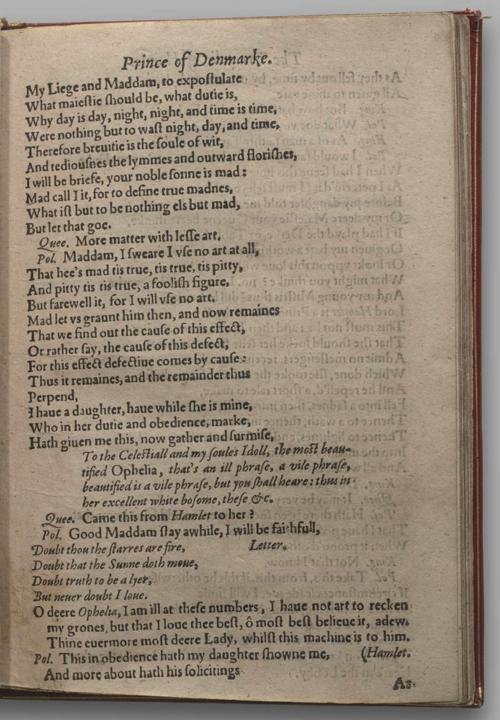 Prince of Denmarke.
My Liege and Maddam, to expostulate
What maiestie should be, what dutie is,
Why day is day, night, night, and time is time,
Were nothing but to wast night, day, and time,
Therefore breuitie is the soule of wit,
And tediousnes the lymmes and outward florishes,
I will be briefe, your noble sonne is mad:
Mad call I it, for to define true madnes,
What ist but to be nothing els but mad,
But let that goe.
Quee. More matter with lesse art.
Pol. Maddam, I sweare I vse no art at all,
That hee's mad tis true, tis true, tis pitty,
And pitty tis tis true, a foolish figure,
But farewell it, for I will vse no art.
Mad let vs graunt him then, and now remaines
That we find out the cause of this effect,
Or rather say, the cause of this defect,
For this effect defectiue comes by cause:
Thus it remaines, and the remainder thus
Perpend,
I haue a daughter, haue while she is mine,
Who in her dutie and obedience, marke,
Hath giuen me this, now gather and surmise,
To the Celestiall and my soules Idoll, the most beau-
tified Ophelia, that's an ill phrase, a vile phrase,
beautified is a vile phrase, but you shall heare: thus in
her excellent white bosome, these &c.
Quee. Came this from Hamlet to her?
Pol. Good Maddam stay awhile, I will be faithfull,
Doubt thou the starres are fire, Letter.
Doubt that the Sunne doth moue,
Doubt truth to be a lyer,
But neuer doubt I loue.
O deere Ophelia, I am ill at these numbers, I haue not art to recken
my grones, but that I loue thee best, ô most best belieue it, adew.
Thine euermore most deere Lady, whilst this machine is to him.
Pol. This in obedience hath my daughter showne me, (Hamlet.
And more about hath his solicitings
As